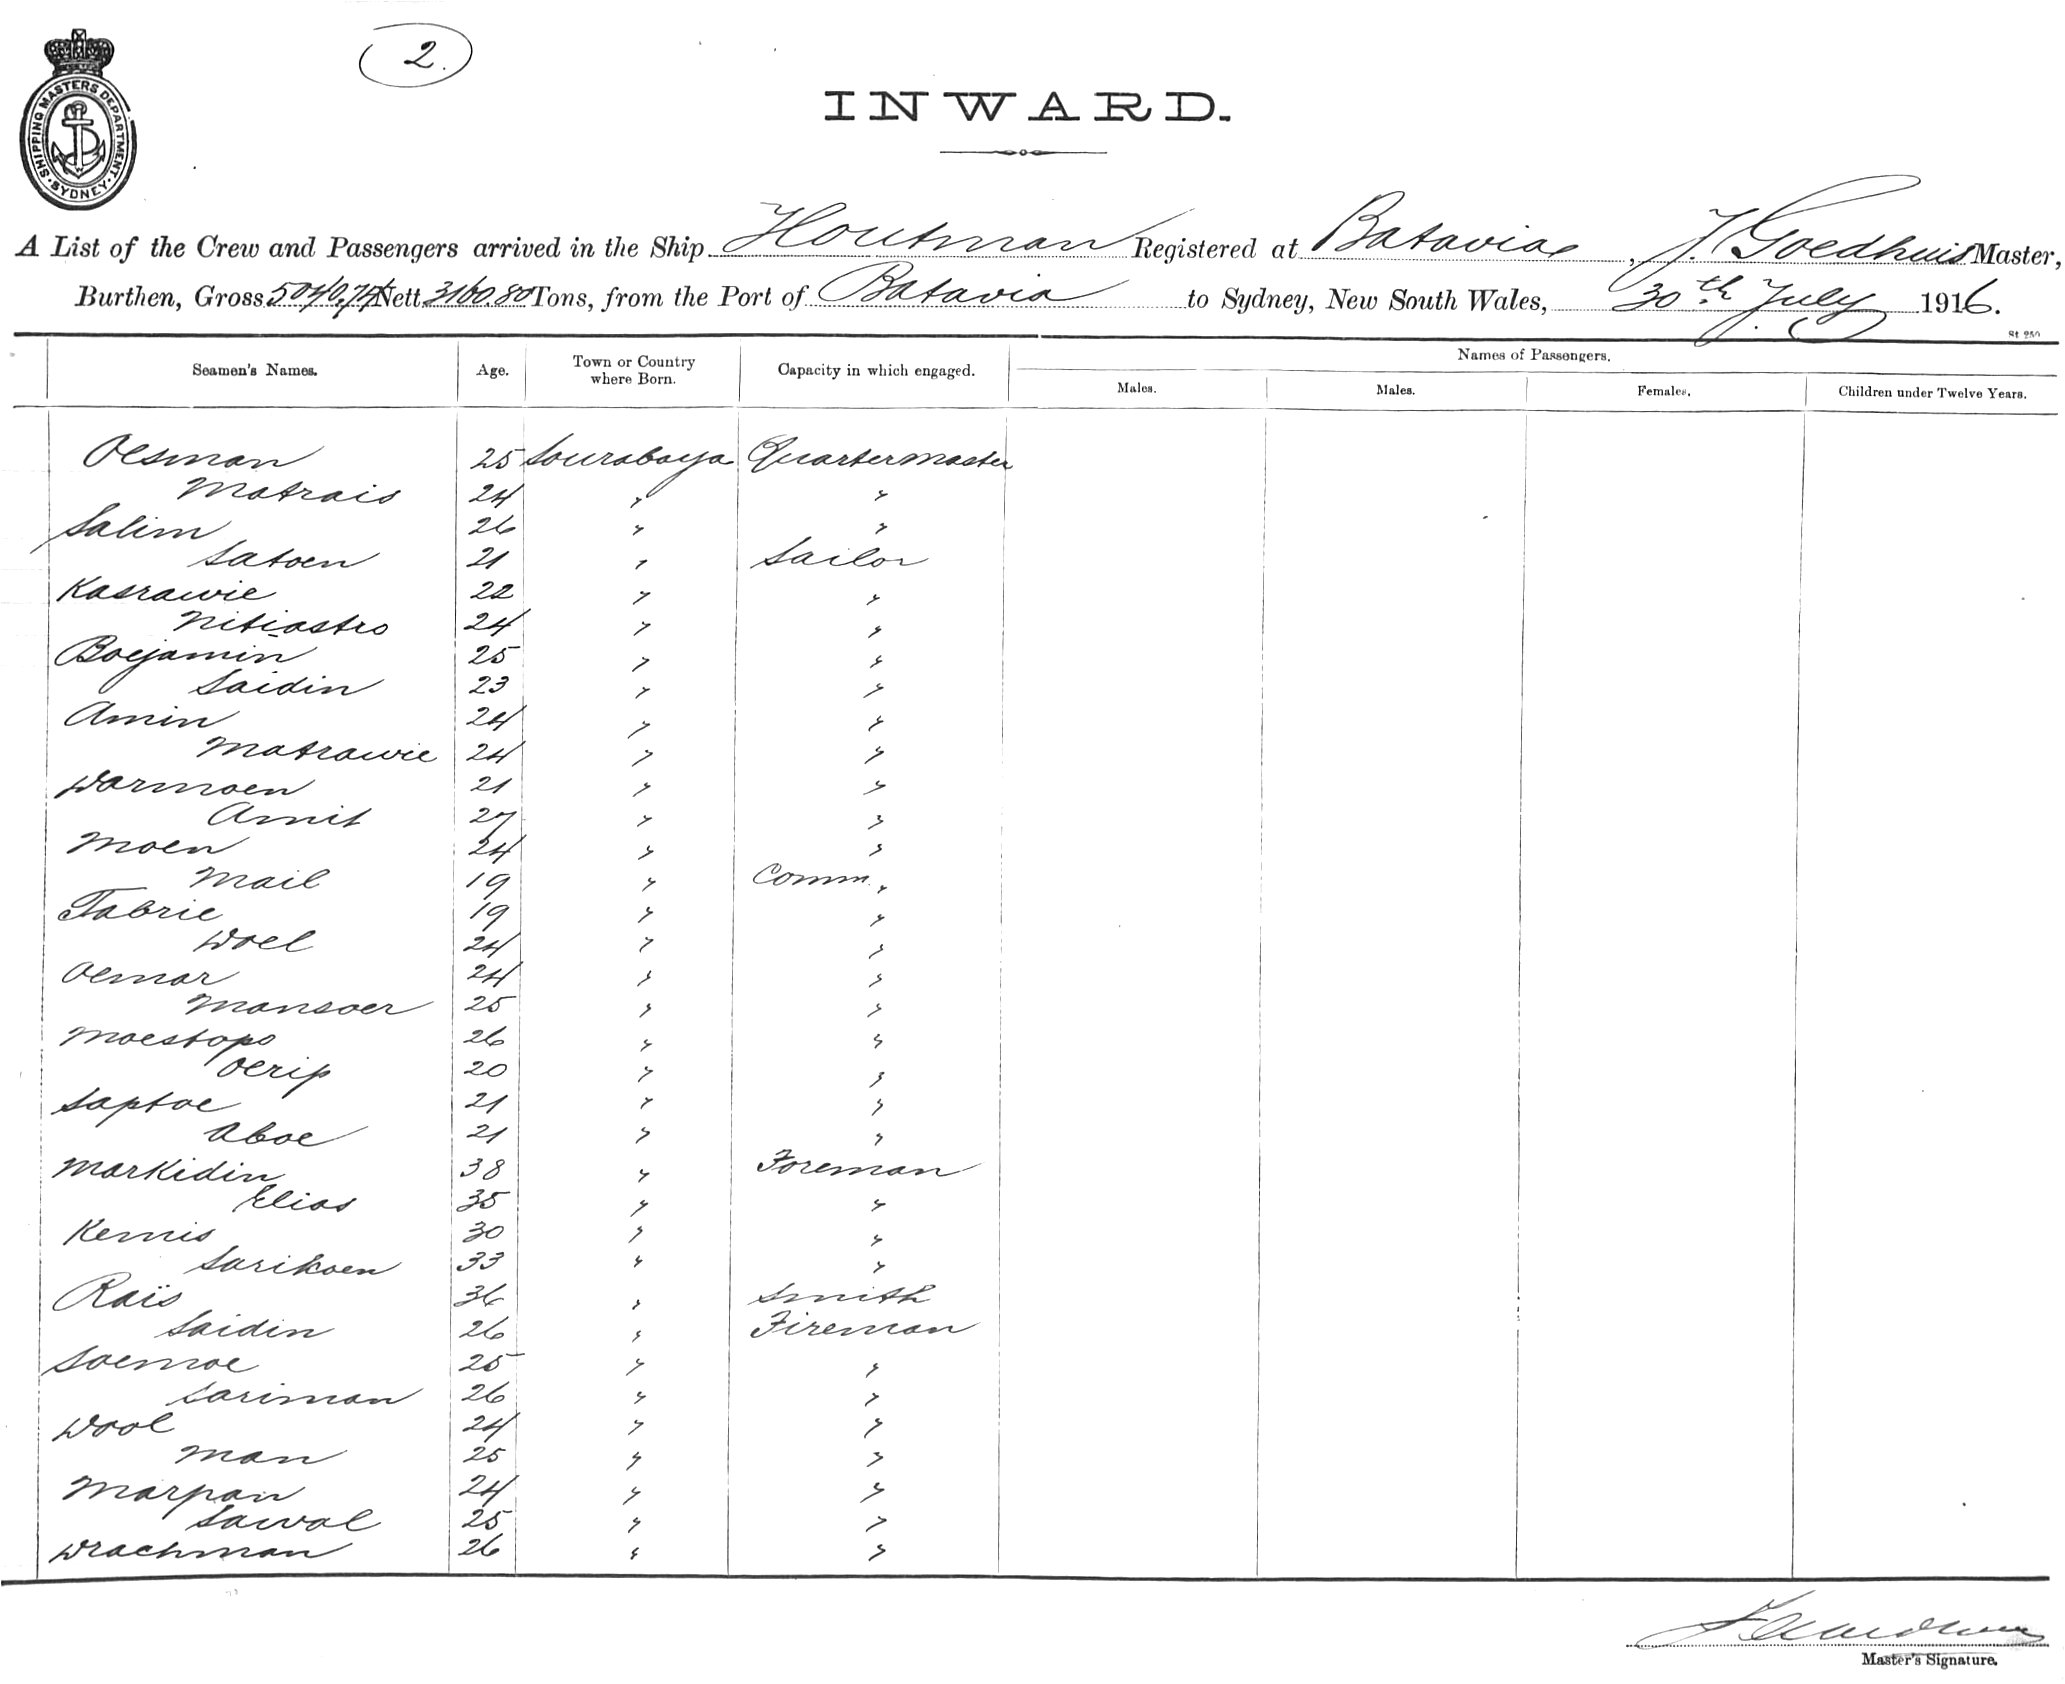 2.
SHIPPING MASTERS DEPARTMENT
SYDNEY
INWARD.
A List of the Crew and Passengers arrived in the Ship Houtman Registered at Batavia, J. Goedhuis Master,
Burthen, Gross 5040,74 Nett 3160.80 Tons, from the Port of Batavia to Sydney, New South Wales, 30th July 1916.
St 250
Seamen's Names. Age. Town or Country where Born. Capacity in which engaged. Names of Passengers.
Males. Males. Females. Children under Twelve Years.
Oesman 25 Sourabaya Quartermaster
Matrais 24 " "
Salim 26 " "
Satoen 21 " Sailor
Kasrawie 22 " "
Nitiastro 24 " "
Boejamin 25 " "
Saidin 23 " "
Amin 24 " "
Matrawie 24 " "
Warmoen 21 " "
Amit 27 " "
Moen 24 " "
Mail 19 " Comm. "
Tabrie 19 " "
Woel 24 " "
Oemar 24 " "
Mansoer 25 " "
Moestopo 26 " "
Oerip 20 " "
Saptoe 21 " "
Aboe 21 " "
Markidin 38 " Foreman
Elias 35 " "
Kemis 30 " "
Sarikoen 33 " "
Raïs 36 " Smith
Saidin 26 " Fireman
Soemoe 25 " "
Sariman 26 " "
Wool 24 " "
Man 25 " "
Marpan 24 " "
Sawal 25 " "
Wrachman 26 " "
Master's Signature.